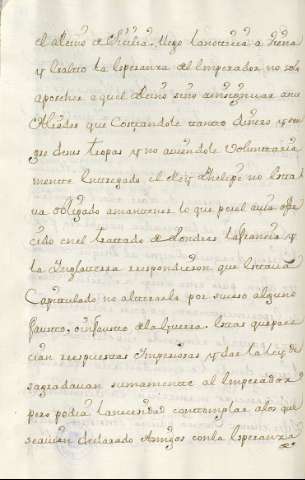 el Reino de Sicilia, llego la noticia a Viena
y crecio la esperanza de el Emperador no solo
aposeher aquel Reino sino
Aliados que Costandole tanto dinero y san
gre de sus tropas y no aviendole voluntaria
mente Entregado el Rey Phelipe no estava
obligado amantener lo que por el avia ofre
cido en el trattado de Londres la Francia y
la Inglaterra respondieron que lo
Capitulado no alterarla por suceso alguno
fausto, o infausto de la Guerra. estas que pare
cian respuestas Imperiosas y dar la Ley de
sagradavan sumamente al Emperador
pero podia la necesidad contemplar a los que
se avian declarado Amigos con la Esperanza